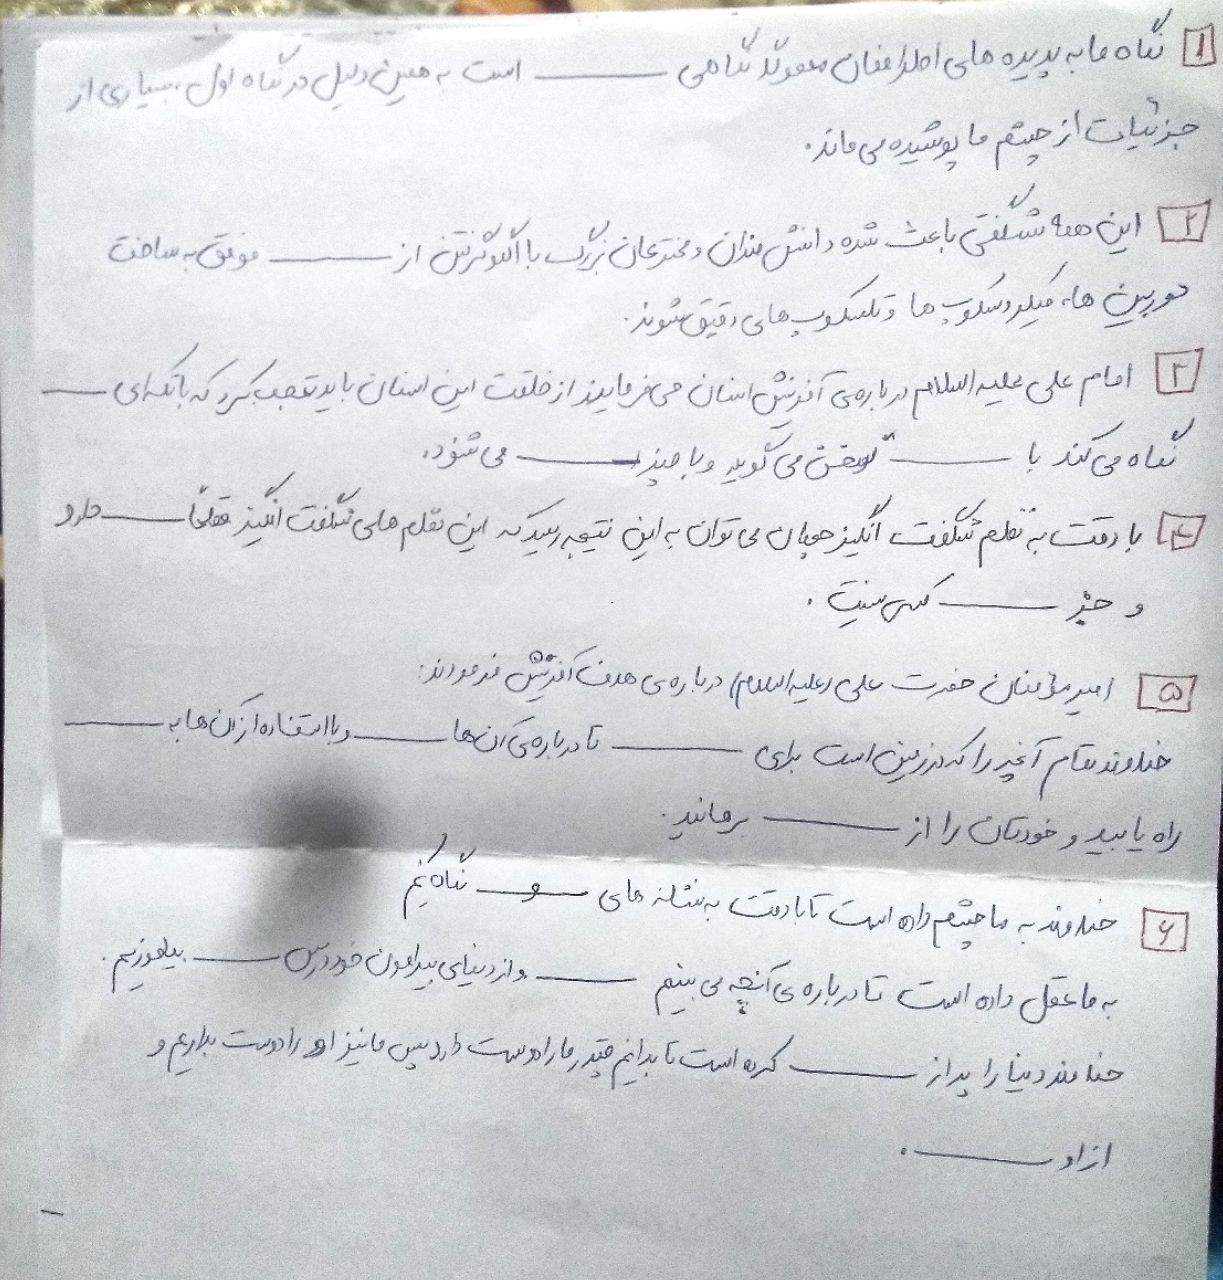 ۱ نگاه ما به پدیده های اطرافمان معمولا نگاهی ــــــ است به همین دلیل در نگاه اول، بسیاری از
جزئیات از چشم ما پوشیده می ماند.
۲ این همه شگفتی باعث شده دانشمندان و مخترعان بزرگ با الگو گرفتن از ــــــ موفق به ساخت
دوربین ها، میکروسکوپ ها و تلسکوپ های دقیق شوند.
۳ امام علی علیه السلام درباره‌ی آفرینش انسان می فرمایند از خلقت این انسان باید تعجب کرد که با تکه ای ــــــ
نگاه می کند با ــــــ سخن می گوید و با چند ــــــ می شنود.
۴ با دقت به نظم شگفت انگیز جهان می توان به این نتیجه رسید که این نظم های شگفت انگیز قطعاً ــــــ دارد
و جز ــــــ کسی نیست.
۵ امیر مؤمنان حضرت علی (علیه السلام) درباره ی هدف آفرینش فرمودند:
خداوند تمام آنچه را که در زمین است برای ــــــ تا درباره ی آن ها ــــــ و با استفاده از آن ها به ــــــ
راه یابید و خودتان را از ــــــ برهانید.
۶ خداوند به ما چشم داده است تا با دقت به نشانه های ــــــ و ــــــ نگاه کنیم
به ما عقل داده است تا درباره ی آنچه می بینیم ــــــ و از دنیای پیرامون خود درس ــــــ بیاموزیم.
خداوند دنیا را پر از ــــــ کرده است تا بدانیم چقدر ما را دوست دارد پس ما نیز او را دوست بداریم و
از او ــــــ.